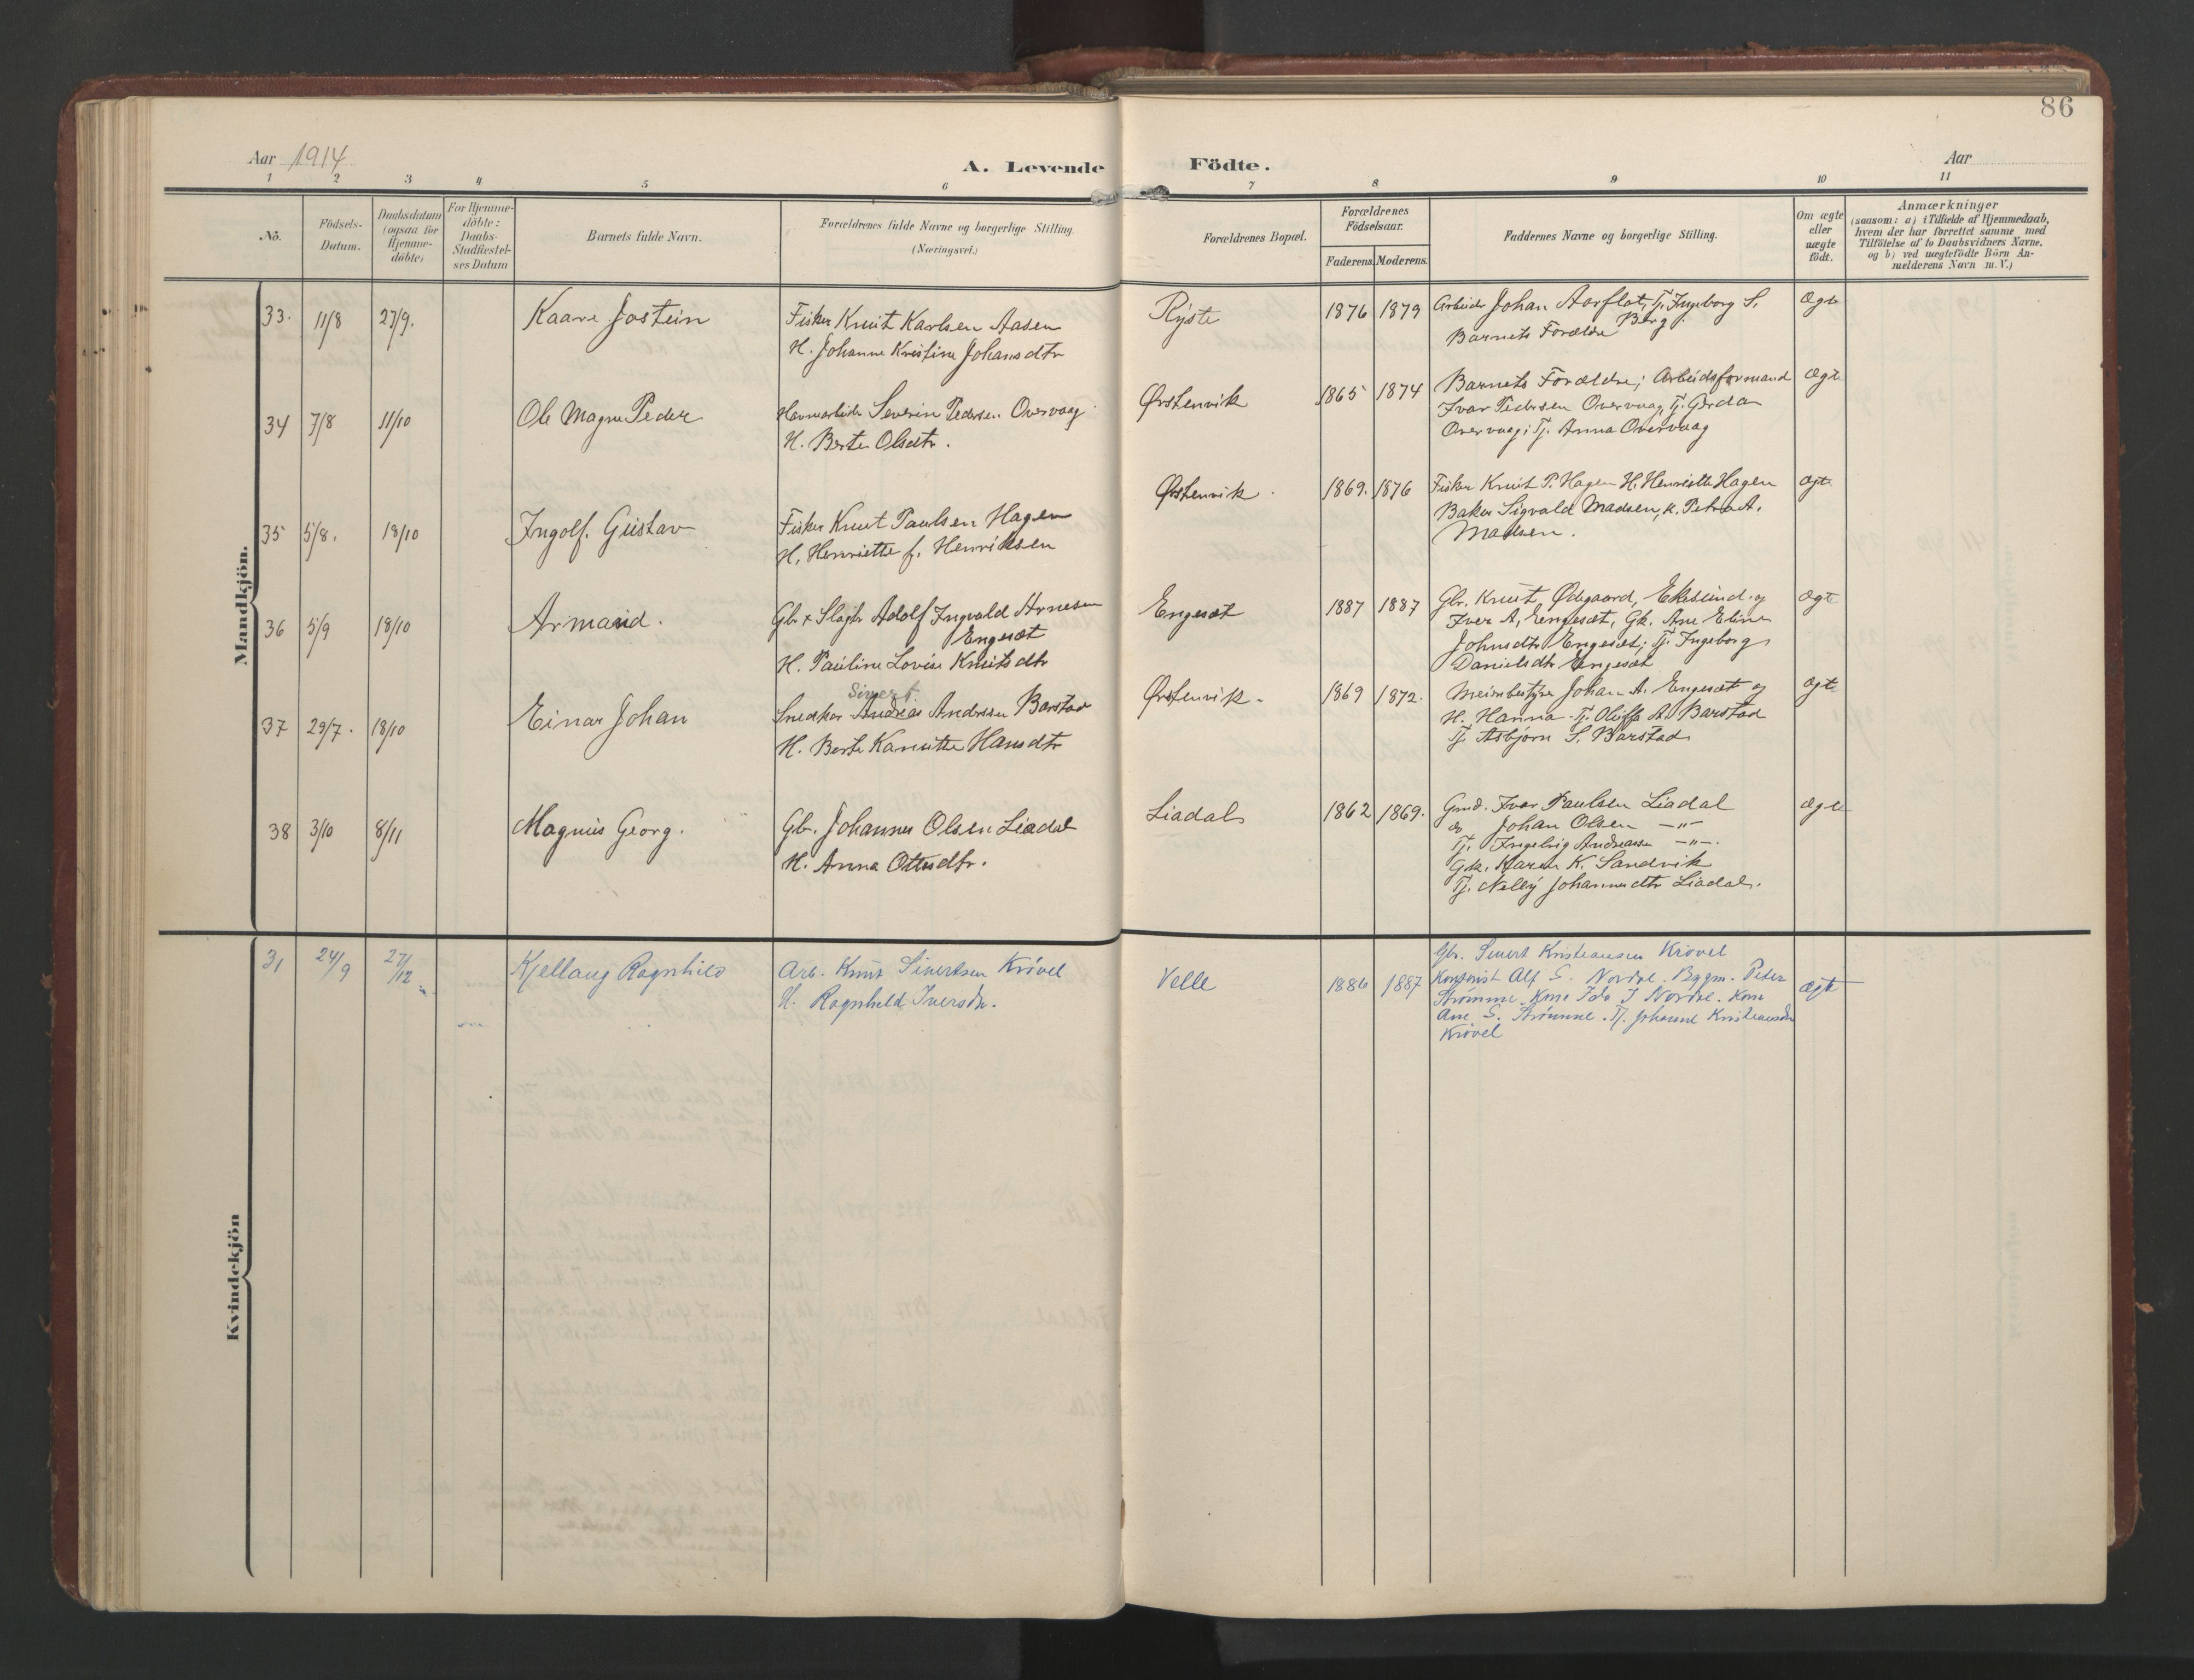 86
Aar 1914
A. Levende Födte.
Aar
1 2 3 4 5 6 7 8 9 10 11
No.
Födsels-
Datum.
Daabsdatum
(ogsaa for
Hjemme-
döbte)
For Hjemme-
döbte:
Daabs-
Stadfæstel-
ses Datum
Barnets fulde Navn.
Forældrenes fulde Navne og borgerlige Stilling.
(Næringsvei.)
Forældrenes Bopæl.
Forældrenes
Födselsaar.
Faderens. Moderens.
Faddernes Navne og borgerlige Stilling.
Om ægte
eller
uægte
födt.
Anmærkninger
(saasom: a) i Tilfælde af Hjemmedaab,
hvem der har forrettet samme med
Tilföielse af to Daabsvidners Navne.
og b) ved uægtefödte Börn An-
melderens Navn m.V.)
Mandkjön.
33. 11/8 27/9. Kaare Jostein
Fisker Knut Karlsen Aasen
H. Johanne Kristine Johansdtr
Ryste 1876 1879
Arbeider Johan Aarflot, Tj. Ingeborg S.
Berg.
Barnets Forældre
Ægte
34 7/8 11/10 Ole Magne Peder
Havnearbeider Severin Pedersen Overvaag
H. Berte Olsdtr.
Ørstenvik 1865 1874
Barnets Forældre; Arbeidsformand
Ivar Pedersen Overvaag, Tj. Gerda
Overvaag; Tj. Anna Overvaag
Ægte
35 5/8. 18/10 Ingolf Gustav
Fisker Knut Paulsen Hagen
H. Henriette f. Henriksen
Ørstenvik. 1869. 1876
Fisker Knut P. Hagen H. Henriette Hagen
Baker Sigvald Madsen, k. Petra A.
Madsen.
Ægte
36 5/9 18/10 Armand.
Gbr & Slagter Adolf Ingvald Arnesen
Engeset
H. Pauline Lovise Knutsdtr
Engeset 1887 1887
Gbr. Knut Ødegaard, Ekslund og
Iver A. Engeset, Gk. Ane Eline
Johnsdtr Engeset; Tj. Ingeborg
Danielsdtr Engeset
Ægte
37 29/7. 18/10 Einar Johan
Sivert
Snedker Andreas Andersen Barstad
H. Berte Karnitte Hansdtr
Ørstenvik. 1869 1872.
Meieribestyrer Johan A. Engeset og
H. Hanna. Tj. Oluffa A. Barstad
Tj. Asbjørn S. Barstad
Ægte
38 3/10 8/11 Magnus Georg.
Gbr. Johannes Olsen Liadal
H. Anna Ottesdtr.
Liadal 1862 1869.
Gmd. Ivar Paulsen Liadal
do Johan Olsen —"—
Tj. Ingebrig Andreassen —"—.
Gdk. Karen K. Sandvik
Tj. Nelly Johannesdtr Liadal.
Ægte
Kvindekjön
31 24/9 27/12 Kjellaug Ragnhild
Arb. Knut Sivertsen Krøvel
H. Ragnhild Iversdtr.
Velle 1886 1887
Gbr. Sivert Kristiansen Krøvel
Kontorist Alf S. Nordre. Bygm. Peter
Strømme. Kone Ida J Nordre. Kone
Ane S. Strømme. Tj. Johanne Kristiansdtr
Krøvel
ægte